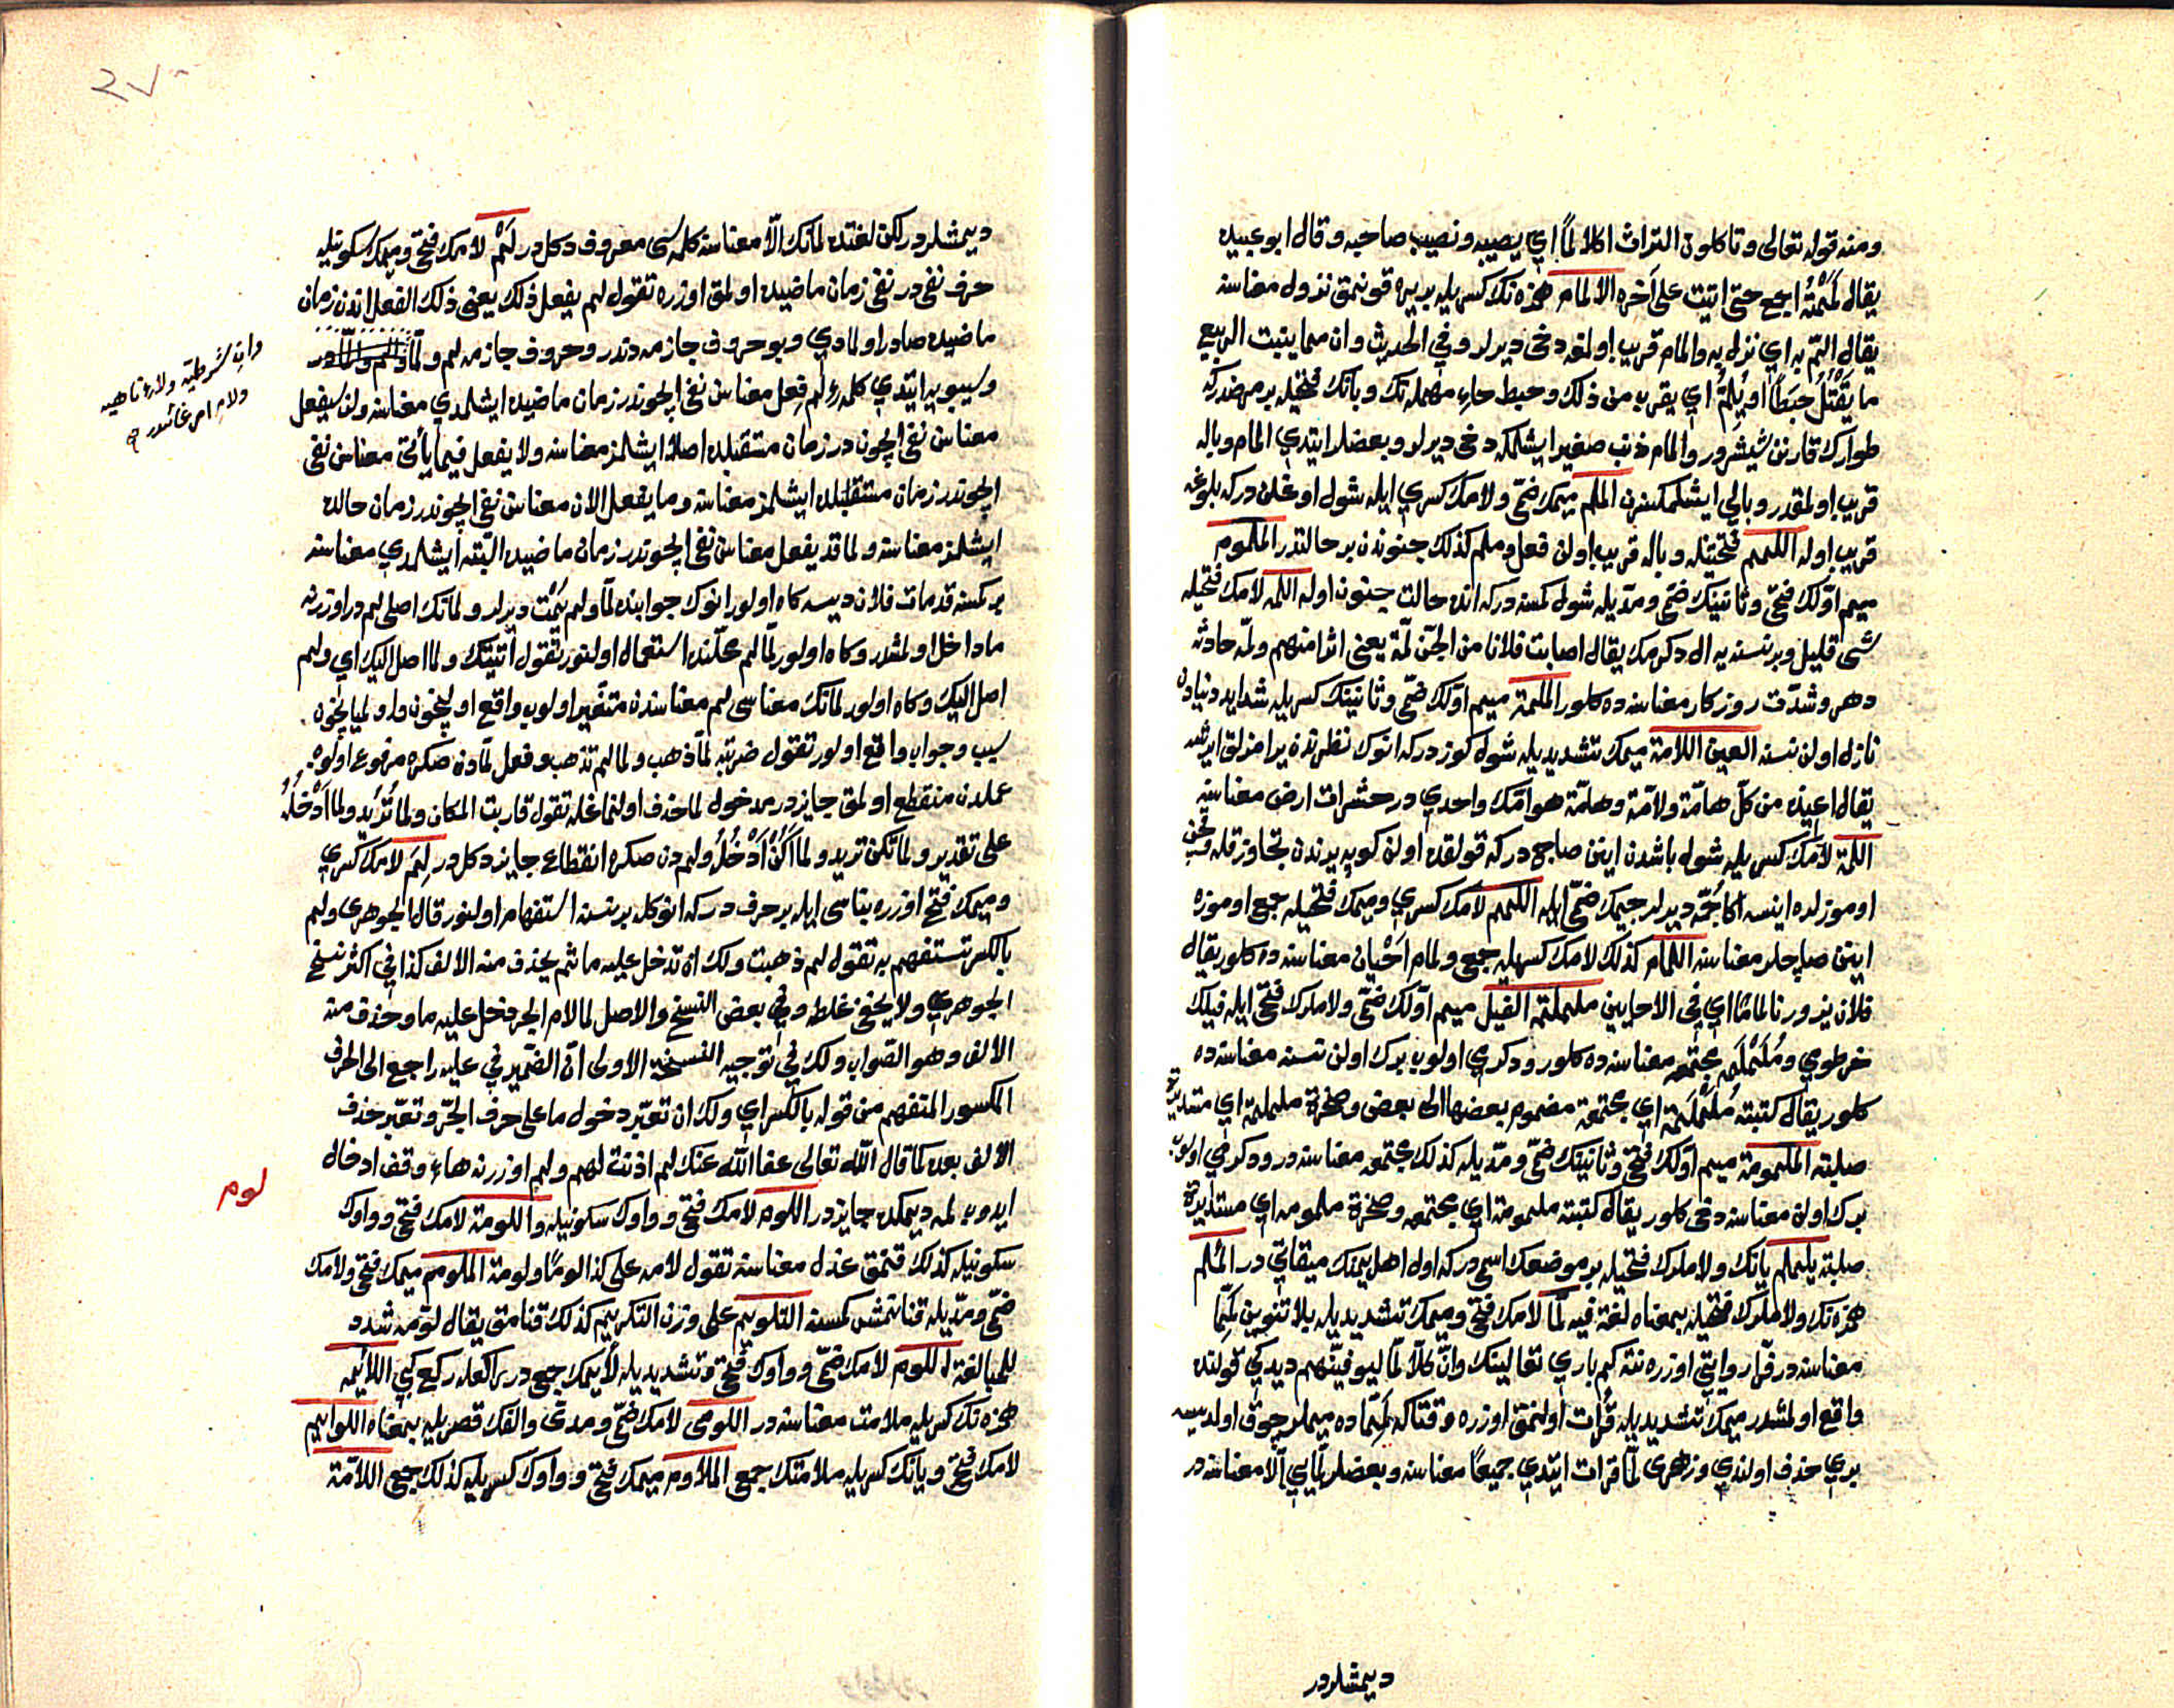 ومنه قوله تعالى وتاكلون التراث اكلا لمًّا اي يصيبه ونصيب صاحبه وقال ابو عبيده
يقال لممته اجمع حتى اتيت على آخره الالمام همزه نك كسريله بر يره قونمق نزول معناسنه
يقال المّ به اي نزل به والمام قريب اولمغه دخى ديرلر وفي الحديث وان مما ينبت الربيع
ما يقتل حبطًا او يُلمّ اي يقرب من ذلك وحبط حاء مهمله نك وبانك فتحيله بر مرضدركه
طوارك قارنى شيشرور والمام ذنب صغير ايشلمكه دخى ديرلر وبعضلر ايتدي المام وباله
قريب اولمقدر وبالي ايشلمكسزن الملم ميمك ضمى ولامك كسري ايله شول اوغلاندركه بلوغه
قريب اوله اللمم فتحتيله وباله قريب اولن فعل وملم كذلك جنوندن بر حالتدر الملموم
ميم اوّلك فتحى وثانينك ضمى ومدّيله شول كمسه دركه انده حالت جنون اوله اللمه لامك فتحيله
شى قليل وبر نسنه يه ال دكرمك يقال اصابت فلانا من الجنّ لمّة يعنى اثرا منهم ولمّه حادثه
دهر وشدّت روزكار معناسنه ده كلور الملمة ميم اوّلك ضمى وثانينك كسريله شدايد دنيادن
نازل اولن نسنه العين اللامة ميمك تشديديله شول كوزدركه انوك نظرندن برا مزلق ايرشه
يقال اعيذه من كلّ هامّة ولامّة وهامّة هوامّك واحدي در حشرات ارض معناسنه
اللمّة لامك كسريله شول باشدن اينن صاجدركه قولقده اولن كوپه يرندن تجاوز قله وقچن
اوموزلره اينسه اكا جُمّه ديرلر جيمك ضمّى ايله اللمم لامك كسري وميمك فتحيله جمع اوموزه
اينن صاچلر معناسنه اللمام كذلك لامك كسريله جمع ولمام احيان معناسنه ده كلور يقال
فلان يزورنا لمامًا اي في الاحايين ململمة الفيل ميم اوّلك ضمى ولاملرك فتحى ايله فيلك
خرطومي ومُلملَمه مجتمعه معناسنه ده كلور ودكرمي اولوب برك اولن نسنه معناسنه ده
كلور يقال كتيبة مُلملَمة اي مجتمعة مضموم بعضها الى بعض وصخرة ململمة اي مستديرة
صلبه الملمومة ميم اوّلك فتحى وثانينك ضمى ومدّيله كذلك مجتمعه معناسنه در ودكرمي اولوب
برك اولن معناسنه دخى كلور يقال كتيبة ملمومة اي مجتمعه وصخرة ملمومه اي مستديرة
صلبة يلملم يانك ولاملرك فتحيله بر موضعك اسمى دركه اول اهل يمنك ميقاتي در المُلم
همزه نك ولاملرك فتحيله بمعناه لغة فيه لمّا لامك فتحى وميمك تشديديله بلا تنوين لمّا
معناسنه در فرّا روايتي اوزرنه نته كم باري تعالينك وانّ كلاّ لمّا ليوفينّهم ديدكي قولنده
واقع اولمشدر ميمك تشديديله قرات اولنمق اوزره وقتاكه لَمِمّا ده ميملر چوق اولديسه
بري حذف اولندي وزهرى لمّا قرات ايتدي جميعًا معناسنه وبعضلر لمّا يي الّا معناسنه در
ديمشلردر
ديمشلردر لكن لغتده لمّانك الّا معناسنه كلمه سى معروف دكل در لَمْ لامك فتحى وميمك سكونيله
حرف نفى در نفى زمان ماضيده اولمق اوزره تقول لم يفعل ذلك يعنى ذلك الفعل اندن زمان
ماضيده صادر اولمادي وبو حروف جازمه دندر وحروف جازمه لم ولمّا والم والمّا در
وسيبويه ايتدي كلمهء لم فِعل معناسن نفى ايچوندر زمان ماضيده ايشلمدي معناسنه ولن سيفعل
معناسن نفى ايچون در زمان مستقبلده اصلا ايشلمز معناسنه ولا يفعل فيما يأتى معناسن نفى
ايچوندر زمان مستقبلده ايشلمز معناسنه وما يفعل الان معناسن نفى ايچوندر زمان حالده
ايشلمز معناسنه ولما قد يفعل معناسن نفى ايچوندر زمان ماضيده البته ايشلمدي معناسنه
بر كمسه قد مات فلان ديسه كاه اولور انوك جوابنده لمّا ولم يَمُت ديرلر ولمانك اصلى لم در اوزرنه
ما داخل اولمشدر وكاه اولور لمّا لم محلّنده استعمال اولنور تقول اتيتك ولما اصل اليك اي ولم
اصل اليك وكاه اولور لمانك معناسى لم معناسندن متغيّر اولوب واقع اوليجون ولولميايجون
سبب وجواب واقع اولور تقول ضربته لمّا ذهب ولما لم تذهب وفعل لمّا دن صكره مرفوع اولوب
عملدن منقطع اولمق جايزدر مدخول لما حذف اولنماغله تقول قاربت المكان ولما تُريد ولما اَدْخُلُ
على تقدير ولما تكن تريد ولما اَكُنْ اَدْخُلُ ولم دن صكره انقطاع جايز دكل در لِمَ لامك كسري
وميمك فتحى اوزره بناسى ايله بر حرف دركه انوكله بر نسنه استفهام اولنور قال الجوهرى ولم
بالكسر تستفهم به تقول لم ذهبت ولك ان تدخل عليه ما ثم يحذف منه الالف كذا في اكثر نسخ
الجوهري ولا يخفى غلطه وفي بعض النسخ والاصل لما لام الجر دخل عليه ما وحذف منه
الالف وهو الصّواب ولك في توجيه النسخة الاولى انّ الضمير في عليه راجع الى الحرف
المكسور المتفهم من قوله بالكسر اي ولك ان تعبّر دخول ما على حرف الجرّ وتعبّر حذف
الالف بعده كما قال الله تعالى عفا الله عنك لم اذنت لهم ولم اوزرنه هاء وقف ادخال
ايدوب لمه ديمكده جايزدر اللوم لامك فتحى وواوك سكونيله واللومة لامك فتحى وواوك
سكونيله كذلك قنمق عذل معناسنه تقول لامه على كذا لومًا ولومة الملوم ميمك فتحى ولامك
ضمى ومدّيله قنانمش كمسنه التلويم على وزن التكريم كذلك قنامق يقال لوّمه شدد
للمبالغة اللوم لامك ضمى وواوك فتحى وتشديديله لايمك جمع در راكعله ركع كبي اللائمه
همزه نك كسريله ملامت معناسنه در اللومى لامك ضمى ومدى والفك قصريله بمعناه اللوايم
لامك فتحى ويانك كسريله ملامتك جمع الملاوم ميمك فتحى وواوك كسريله كذلك جمع اللامّة
وان شرطيه ولاء ناهيه
ولام امر غائبدر صح
لوم
٢٧٠